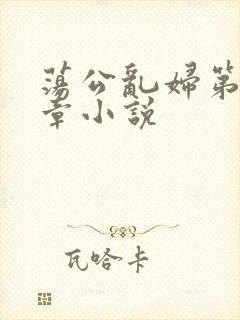 蕩公亂婦第
章小說
瓦哈卡